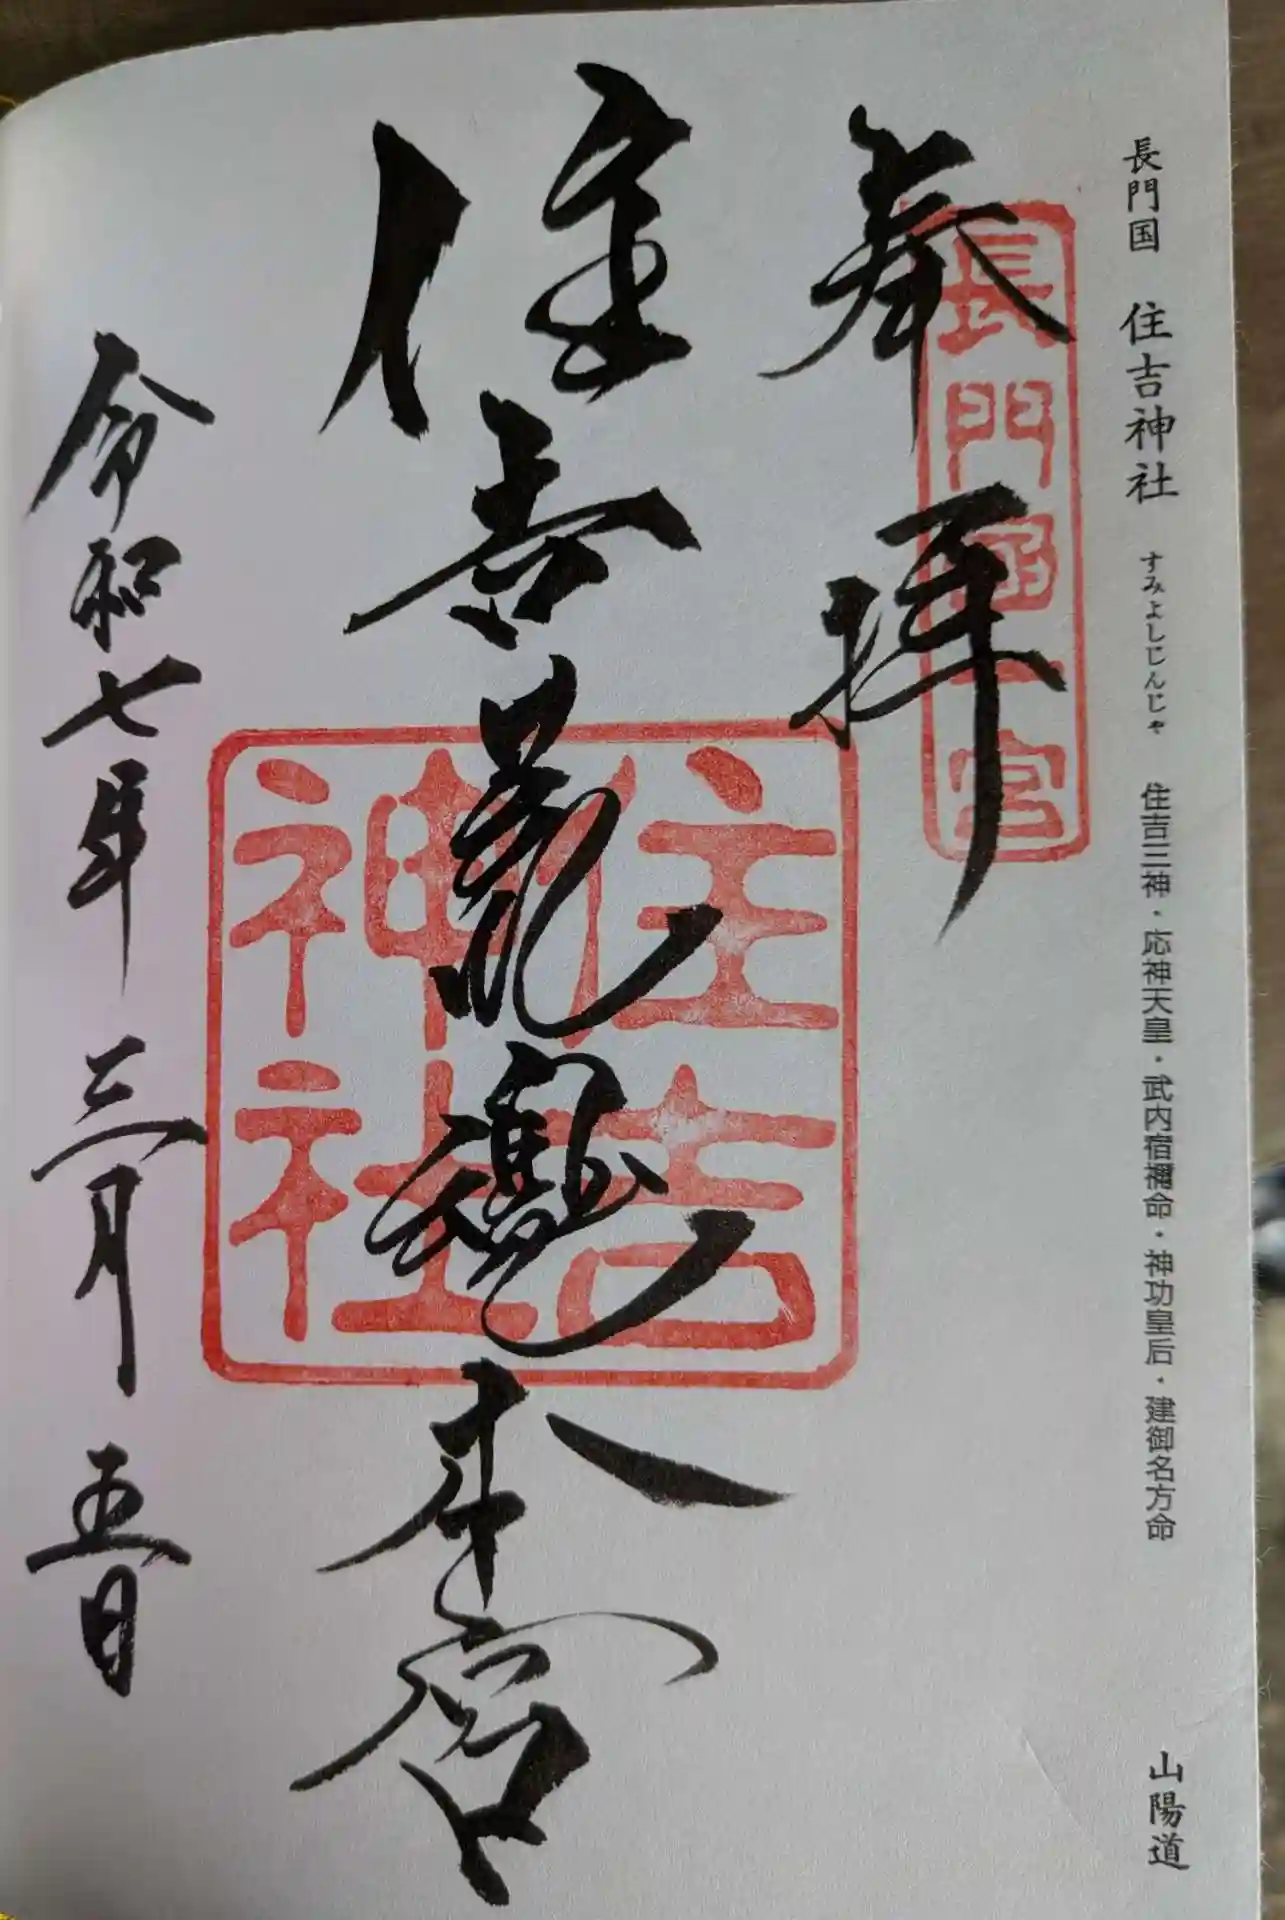 長門国 住吉神社 すみよしじんじゃ 住吉三神・応神天皇・武内宿禰命・神功皇后・建御名方命 山陽道
長門国一宮
奉拝
住吉荒魂本宮
住吉
神社
令和七年三月五日